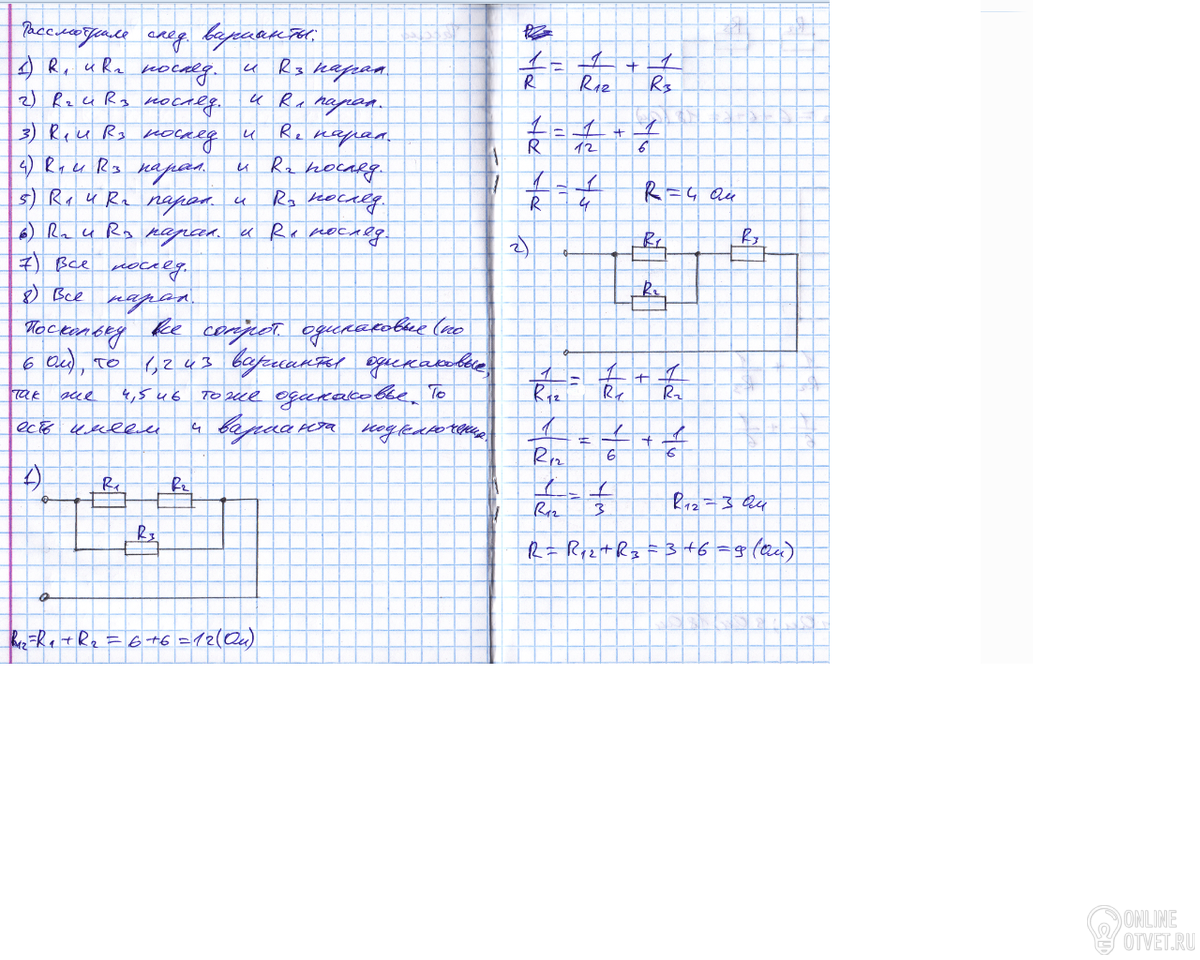 Рассмотрим след. варианты:
1) R₁ и R₂ послед. и R₃ парал.
2) R₂ и R₃ послед. и R₁ парал.
3) R₁ и R₃ послед и R₂ парал.
4) R₁ и R₃ парал. и R₂ послед.
5) R₁ и R₂ парал. и R₃ послед.
6) R₂ и R₃ парал. и R₁ послед.
7) Все послед.
8) Все парал.
Поскольку все сопрот. одинаковые (по
6 Ом), то 1, 2 и 3 варианты одинаковые,
так же 4, 5 и 6 тоже одинаковые. То
есть имеем 4 варианта подключения.
1)
R₁ R₂
R₃
R₁₂ = R₁ + R₂ = 6 + 6 = 12 (Ом)
1/R = 1/R₁₂ + 1/R₃
1/R = 1/12 + 1/6
1/R = 1/4 R = 4 Ом
2)
R₁ R₃
R₂
1/R₁₂ = 1/R₁ + 1/R₂
1/R₁₂ = 1/6 + 1/6
1/R₁₂ = 1/3 R₁₂ = 3 Ом
R = R₁₂ + R₃ = 3 + 6 = 9 (Ом)
ONLINE
OTVET.RU